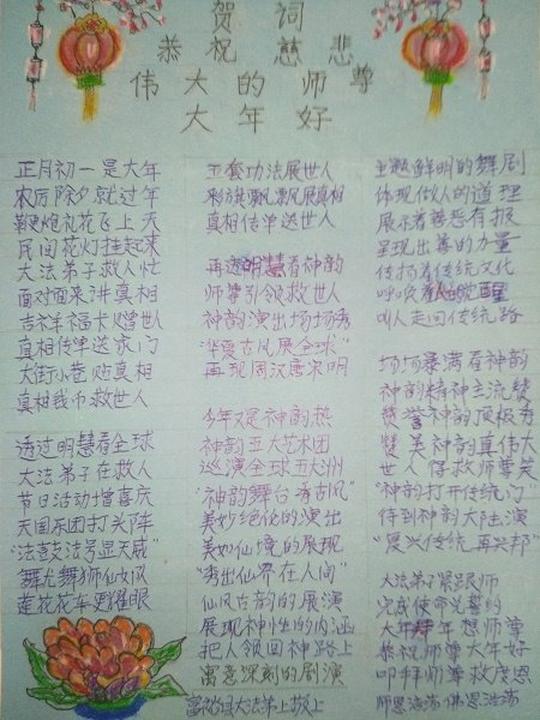 贺词
恭祝慈悲
伟大的师尊
大年好
正月初一是大年
农历除夕就过年
鞭炮礼花飞上天
民间花灯挂起来
大法弟子救人忙
面对面来讲真相
吉祥福卡赠世人
真相传单送家门
大街小巷贴真相
真相钱币救世人
透过明慧看全球
大法弟子在救人
节日活动增喜庆
天国乐团打头阵
"法鼓法号显天威"
舞龙舞狮仙女队
莲花花车更耀眼
五套功法展世人
彩旗飘飘展真相
真相传单送世人
再透明慧看神韵
师尊引领救世人
神韵演出场场秀
"华夏古风展全球"
再现周汉唐宋明
今年又是神韵热
神韵五大艺术团
巡演全球五大洲
"神韵舞台看古风"
美妙绝伦的演出
美如仙境的展现
"秀出仙界在人间"
仙风古韵的展演
展现神性的内涵
把人领回神路上
寓意深刻的剧演
主题鲜明的舞剧
体现做人的道理
展示着善恶有报
呈现出善的力量
传扬着传统文化
呼唤着人的觉醒
叫人走回传统路
场场暴满看神韵
神韵精神主流赞
赞誉神韵顶极秀
赞美神韵真伟大
世人得救师尊笑
"神韵打开传统门"
待到神韵大陆演
"复兴传统再兴邦"
大法弟子紧跟师
完成使命兑誓约
大年 年想师尊
恭祝师尊大年好
叩拜师尊救度恩
师恩浩荡佛恩浩荡
富裕县大法弟子敬上